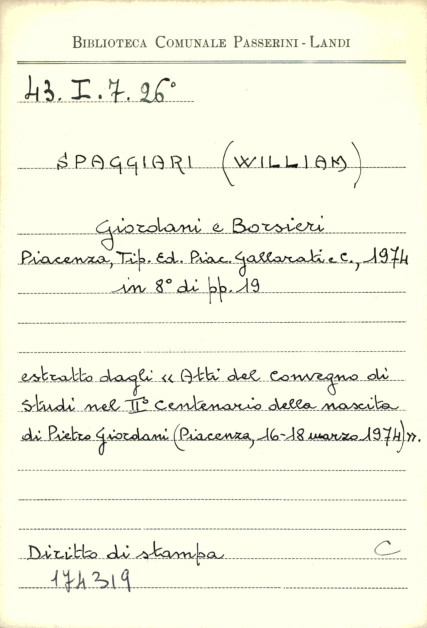 BIBLIOTECA COMUNALE PASSERINI - LANDI
43. I. 7. 26°
SPAGGIARI (WILLIAM)
Giordani e Borsieri
Piacenza, Tip. Ed. Piac. Gallarati e C., 1974
in 8° di pp. 19
estratto dagli «Atti del Convegno di
Studi nel II° Centenario della nascita
di Pietro Giordani (Piacenza, 16-18 marzo 1974)».
Diritto di stampa C
174319